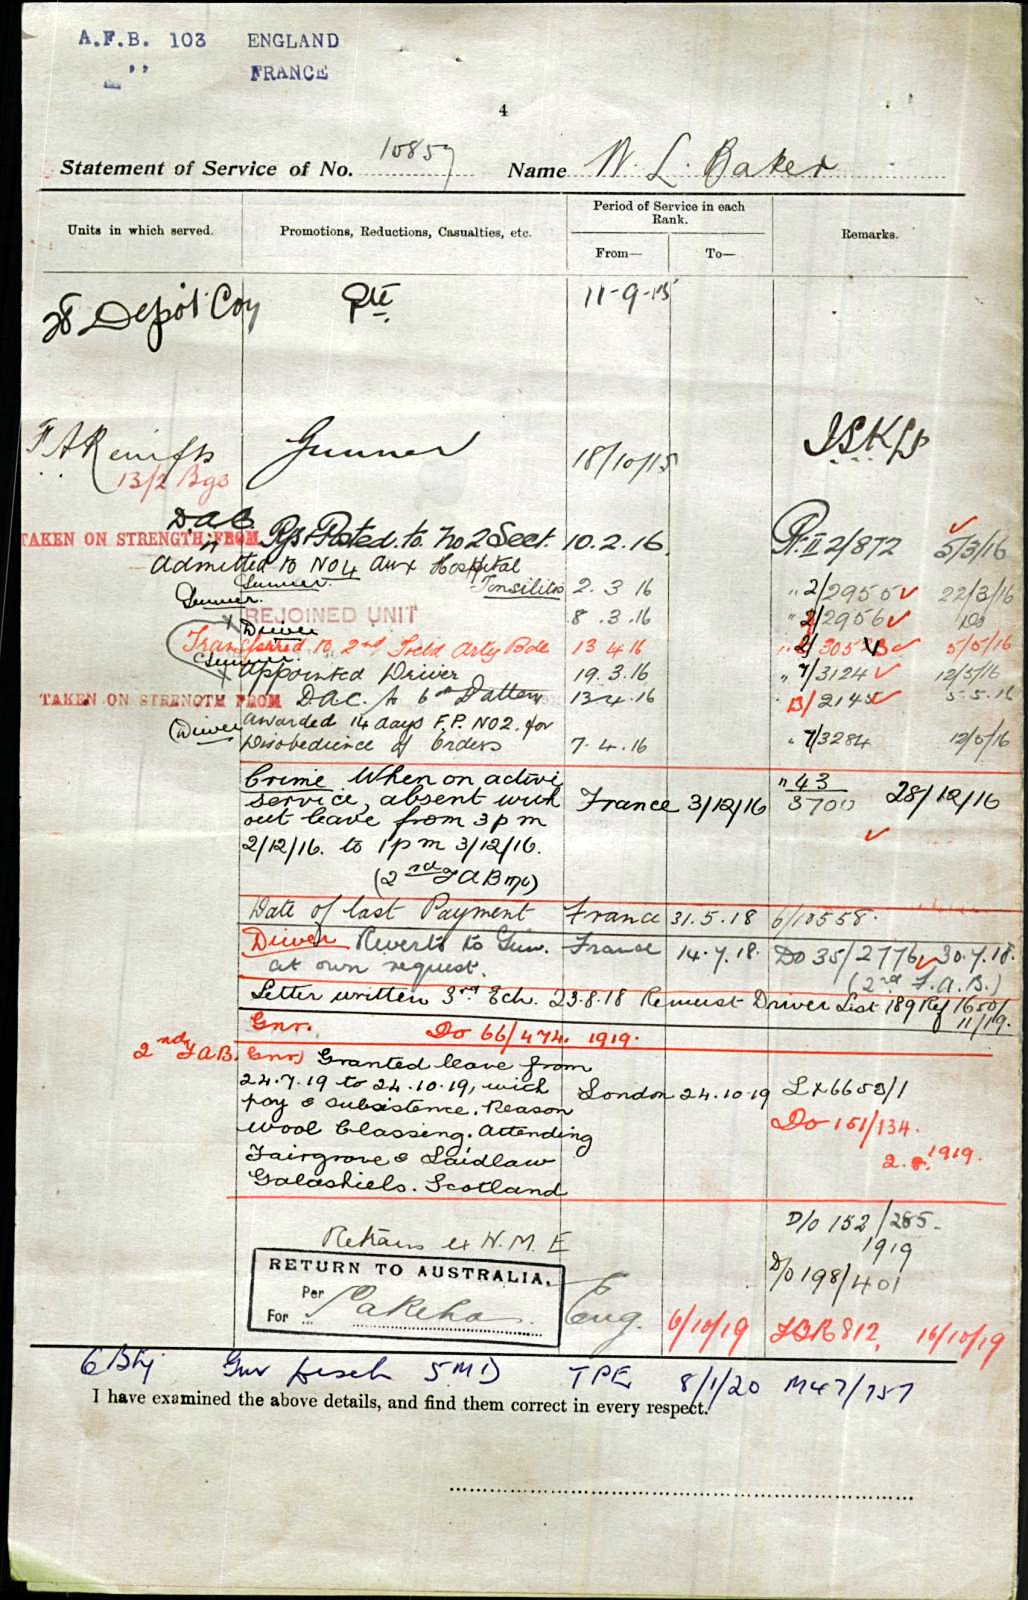 A.F.B. 103 ENGLAND
" FRANCE
4
Statement of Service of No. 10857 Name W. L. Baker
Units in which served. Promotions, Reductions, Casualties, etc. Period of Service in each Rank. Remarks.
From— To—
28 Depot Coy Pte 11-9-15
F A Reinfts Gunner 18/10/15
13/2 Bgs
D.A.C.
TAKEN ON STRENGTH FROM Posted to No 2 Sect. 10.2.16. Pt. II 2/872 5/3/16
Admitted to No 4 Aux Hospital
Gunner Tonsilitis 2.3.16 " 2/2955 22/3/16
Gunner.
REJOINED UNIT 8.3.16 " 2/2956 do
x Driver
Transferred to 2nd Field Arty Bde 13 4 16 5/5/16
Gunner.
x Appointed Driver 19.3.16 " 7/3124 12/5/16
TAKEN ON STRENGTH FROM D.A.C. to 6th Battery 13-4-16 B/2145 5.5.16
(Driver awarded 14 days F.P. No 2. for
Disobedience of Orders 7.4.16 " 7/3284 12/5/16
Crime When on active
service, absent with
out leave from 3 pm France 3/12/16 " 43/3700 28/12/16
2/12/16. to 1 pm 3/12/16.
(2nd F A B)
Date of last Payment France 31.5.18 6/10558.
Driver Reverts to Gun. France 14.7.18. DO 35/2776 30.7.18.
at own request. (2nd F.A.B.)
Letter written 3rd Ech. 23.8.18 Remust Driver List 189 Ref 1650/
11/19.
Gnr. Do 66/474. 1919.
2nd F A B. Gnr) Granted leave from
24.7.19 to 24.10.19, with London 24.10.19 Lx6653/1
pay & subsistence. Reason Do 151/134.
Wool Classing. Attending 2.8.1919.
Fairgrove & Laidlaw
Galashiels. Scotland
D/O 152/255-
1919
Retains ex N.M.E
D/O 198/401
RETURN TO AUSTRALIA.
Per Pakeha
For
Eng. 6/10/19 812. 16/10/19
6 Bty Gnr Disch 5 MD TPE 8/1/20 M47/757
I have examined the above details, and find them correct in every respect.